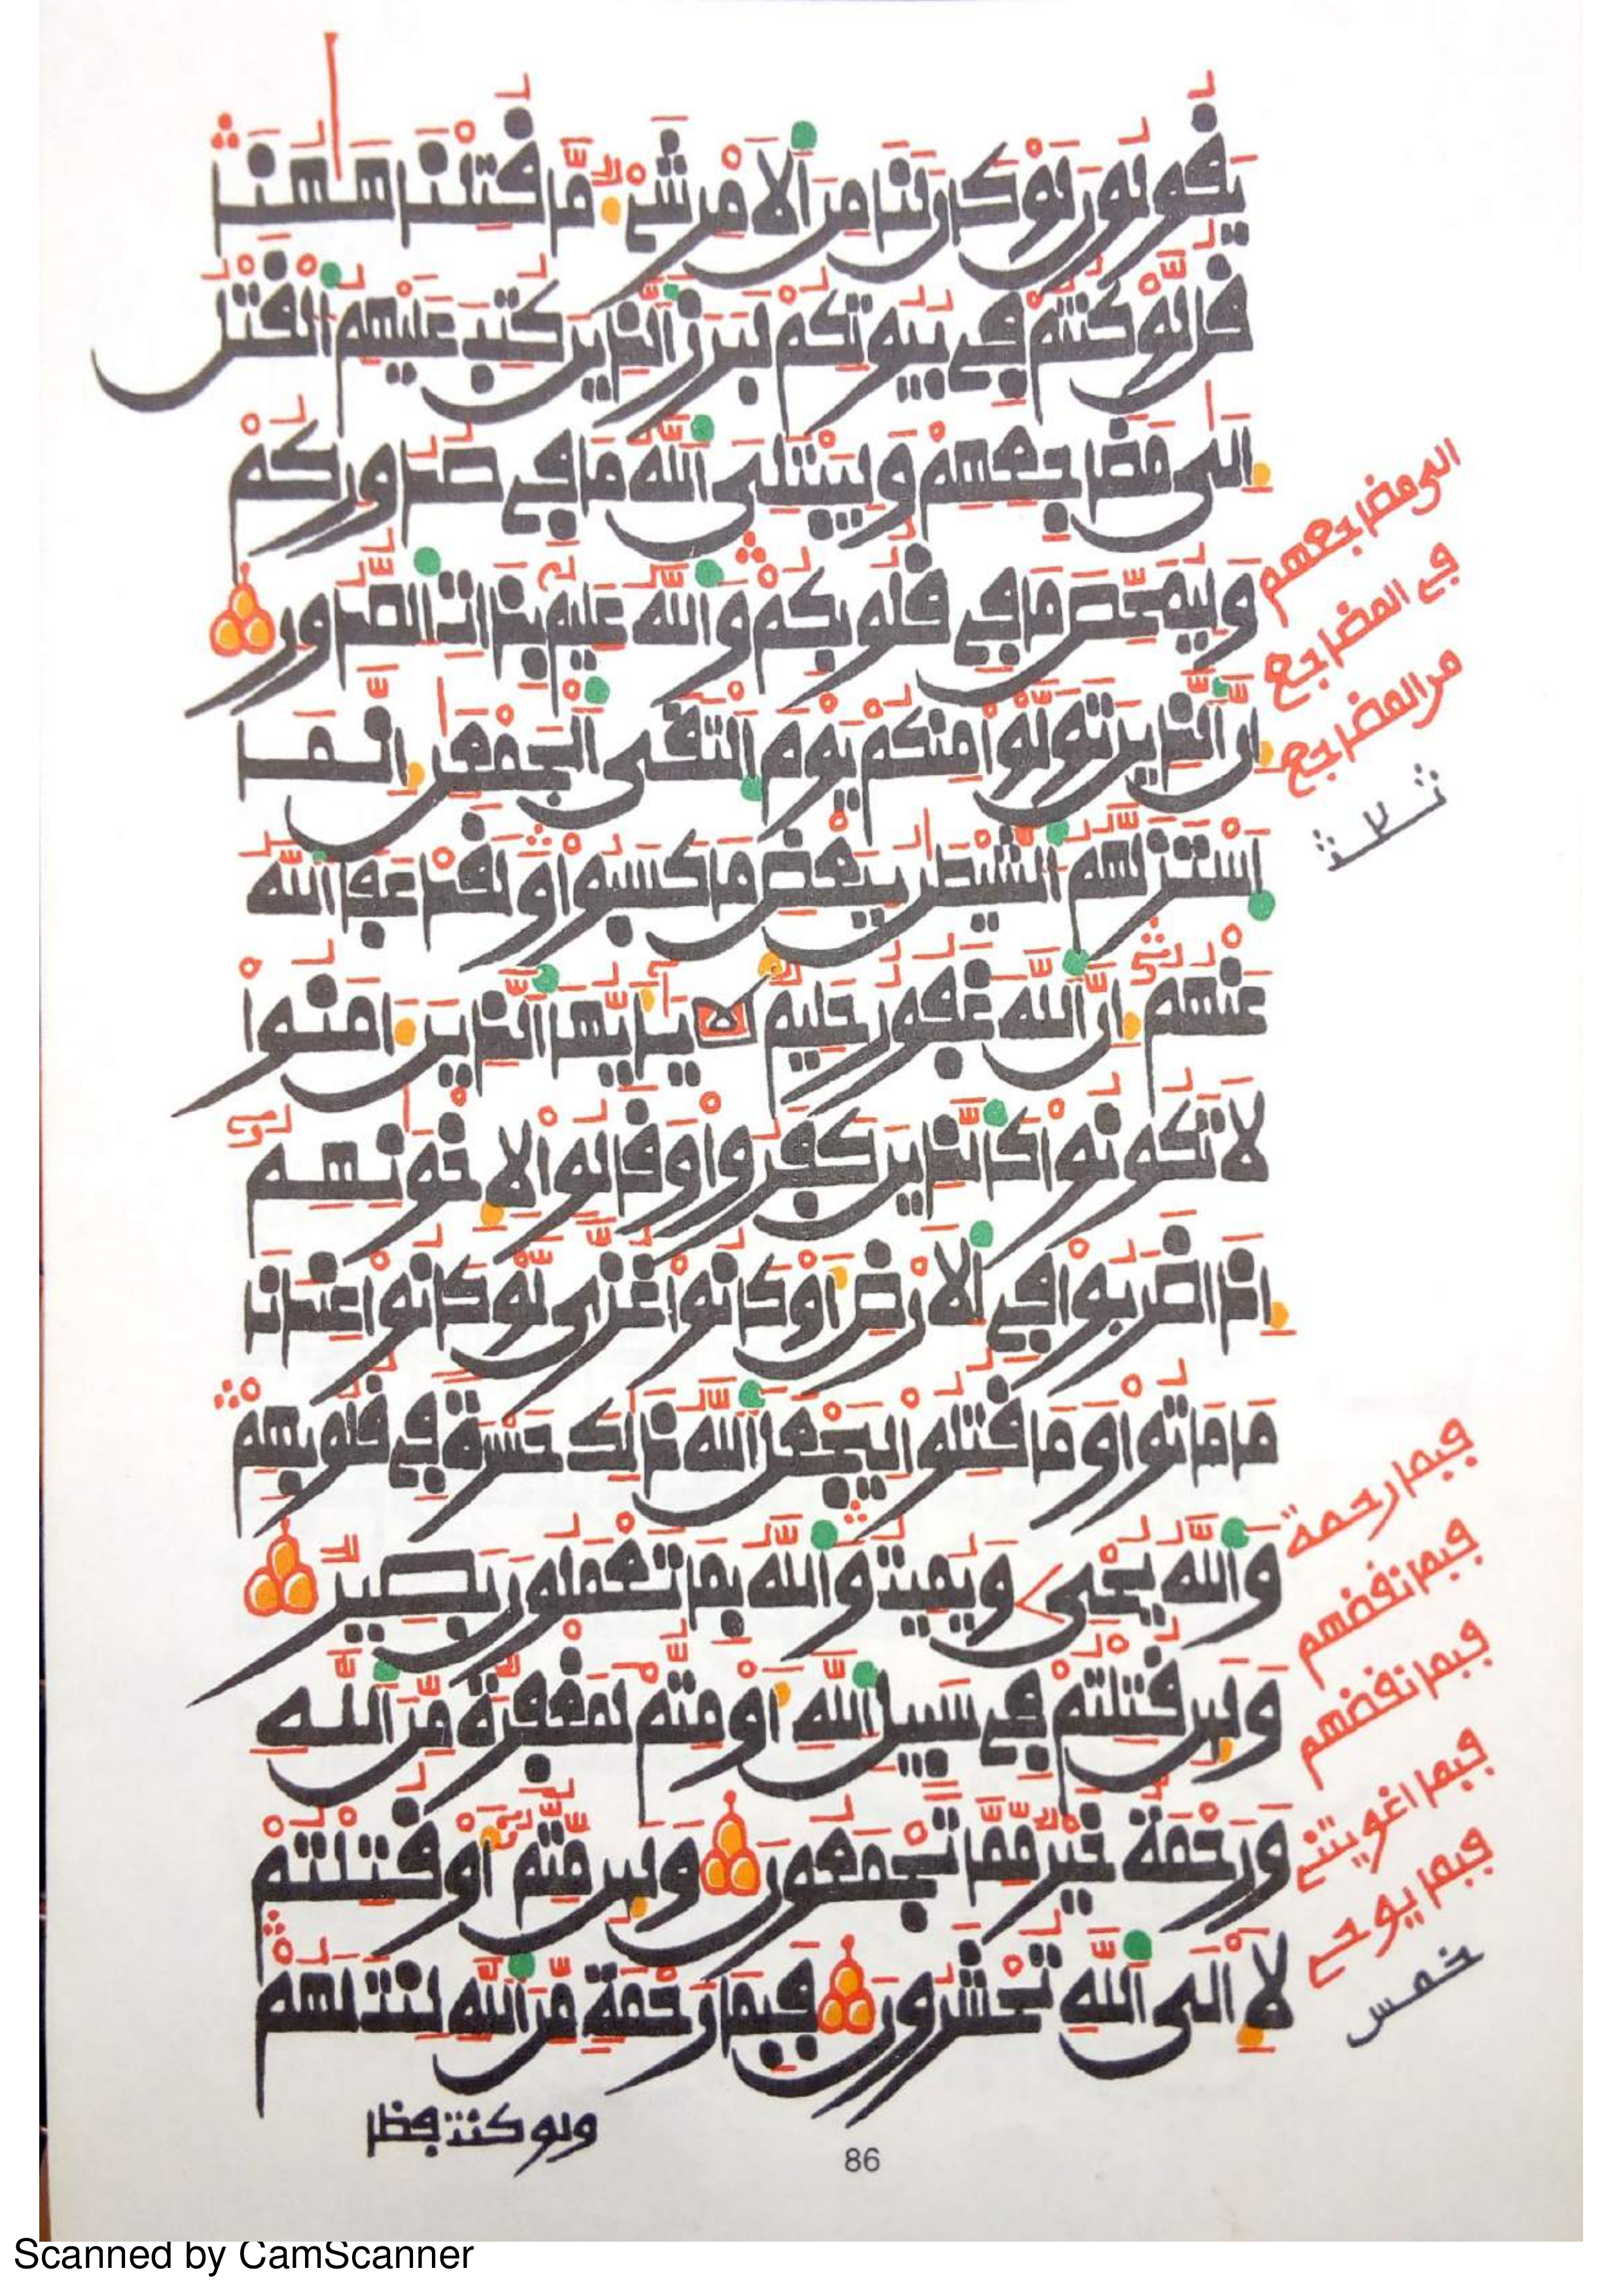 يَقُولُونَ لَوْ كَانَ لَنَا مِنَ اَ۬لَامْرِ شَےْءٞ مَّا قُتِلْنَا هَٰهُنَا
قُل لَّوْ كُنتُمْ فِے بُيُوتِكُمْ لَبَرَزَ اَ۬لذِينَ كُتِبَ عَلَيْهِمُ اُ۬لْقَتْلُ
إِلَىٰ مَضَاجِعِهِمْ وَلِيَبْتَلِيَ اَ۬للَّهُ مَا فِے صُدُورِكُمْ
وَلِيُمَحِّصَ مَا فِے قُلُوبِكُمْ وَاللَّهُ عَلِيمُۢ بِذَاتِ اِ۬لصُّدُورِ
إِنَّ اَ۬لذِينَ تَوَلَّوْاْ مِنكُمْ يَوْمَ اَ۪لْتَقَى اَ۬لْجَمْعَٰنِ إِنَّمَا
اَ۪سْتَزَلَّهُمُ اُ۬لشَّيْطَٰنُ بِبَعْضِ مَا كَسَبُواْ وَلَقَدْ عَفَا اَ۬للَّهُ
عَنْهُمُۥٓ إِنَّ اَ۬للَّهَ غَفُورٌ حَلِيمٞ يَٰٓأَيُّهَا اَ۬لذِينَ ءَامَنُواْ
لَا تَكُونُواْ كَالذِينَ كَفَرُواْ وَقَالُواْ لِإِخْوَٰنِهِمُۥٓ
إِذَا ضَرَبُواْ فِے اِ۬لَارْضِ أَوْ كَانُواْ غُزّىٗ لَّوْ كَانُواْ عِندَنَا
مَا مَاتُواْ وَمَا قُتِلُواْ لِيَجْعَلَ اَ۬للَّهُ ذَٰلِكَ حَسْرَةٗ فِے قُلُوبِهِمْ
وَاللَّهُ يُحْيِۦ وَيُمِيتُ وَاللَّهُ بِمَا تَعْمَلُونَ بَصِيرٞ
وَلَئِن قُتِلْتُمْ فِے سَبِيلِ اِ۬للَّهِ أَوْ مِتُّمْ لَمَغْفِرَةٞ مِّنَ اَ۬للَّهِ
وَرَحْمَةٌ خَيْرٞ مِّمَّا تَجْمَعُونَ وَلَئِن مِّتُّمُۥٓ أَوْ قُتِلْتُمْ
لَإِلَى اَ۬للَّهِ تُحْشَرُونَ فَبِمَا رَحْمَةٖ مِّنَ اَ۬للَّهِ لِنتَ لَهُمْ
ولو كنت فظا
الى مضاجعهم
في المضاجع
من المضاجع
ثلاثة
فبما رحمة
فبما نقضهم
فبما نقضهم
فبما اغويتني
فبما يوحي
خمس
86
Scanned by CamScanner